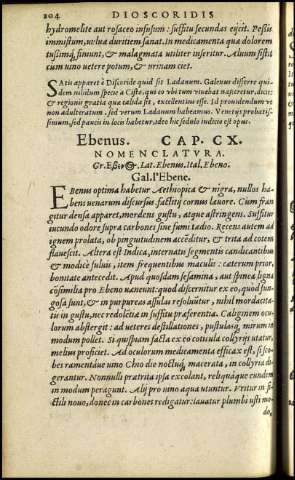 204 DIOSCORIDIS
hydromelite aut rosaceo infusum: suffitu secundas eijcit. Pessis
immistum, vulua duritiem sanat. in medicamenta quæ dolorem
tussimq́; finiunt, & malagmata vtiliter inseritur. Aluum sistit
cum uino uetere potum, & urinam ciet.
SATIS apparet è Dioscoride quid sit Ladanum. Galenus differre qui-
dem nihilum specie a Cisto, qui eo vbi tum viuebat nasceretur, dicit:
& regionis gratia quæ calida sit, excellentius esse. Id prouidendum ve
non adulteratum, sed verum Ladanum habeamus. Venetijs probatis-
simum, sed paucis in locis habetur, ideo hic sedulo iudicio est opus.
Ebenus. CAP. CX.
NOMENCLATVRA.
Lat. Ebenus. Ital. Ebeno.
Gal. l'Ebene.
EBENUS optima habetur Aethiopica & nigra, nullos ha-
bens uenarum discursus, facilitq́; cornus læuore. Cum fran
gitur densa apparet, mordens gustu, atque astringens. Suffitur
iucundo odore supra carbones sine fumi tædio. Recens autem ad
ignem prolata, ob pinguitudinem accēditur, & trita ad cotem
flauescit. Altera est Indica, internatis segmentis candicantibus
& modicè fuluis, item frequentibus maculis: cæterum prior
bonitate antecedit. Apud quosdam sesamina, aut spinea ligna
cōsimilia pro Ebeno uæneunt: quod discernitur ex eo, quod fun-
gosa sunt, & in purpureas assulas resoluūtur, nihil mordacita-
tis in gustu, nec redolētia in suffitu præferentia. Caliginem ocu-
lorum abstergit: ad ueteres distillationes, pustulasq́; mirum in
modum pollet. Si quispiam facta ex eo coticula collyrijs utatur,
melius proficiet. Ad oculorum medicamenta efficax est, si sco-
bes ramentáue uino Chio die noctúq; macerata, in collyria di-
gerantur. Nonnulli pratrita ipsa excolant, reliquáque eundem
in modum peragunt. Alij pro uino aqua utuntur. Vritur in fi-
ctili nouo, donec in carbones redigatur: lauatur plumbi usti mo-
do,